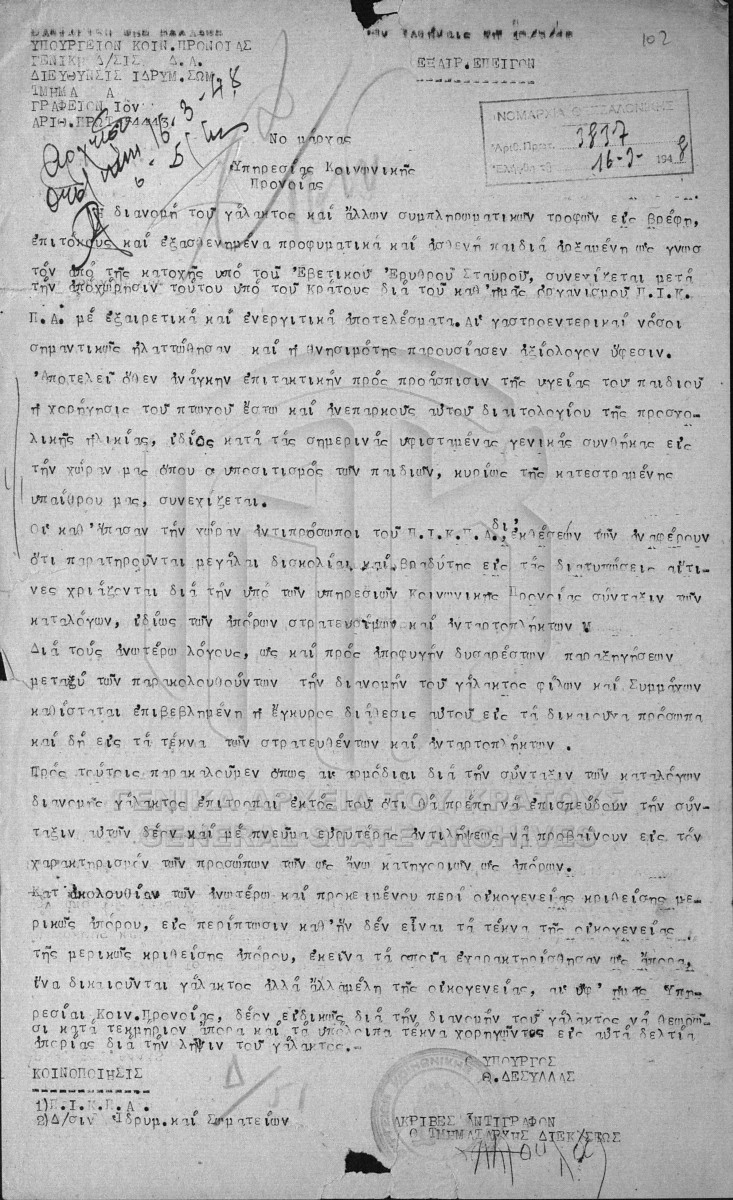 102
ΥΠΟΥΡΓΕΙΟΝ ΚΟΙΝ.ΠΡΟΝΟΙΑΣ
ΓΕΝΙΚΗ Δ/ΣΙΣ Δ.Α.
ΔΙΕΥΘΥΝΣΙΣ ΙΔΡΥΜ.ΣΩΜ
ΤΜΗΜΑ Α
ΓΡΑΦΕΙΟΝ Ιον
ΑΡΙΘ.ΠΡΩΤ.
ΕΞΑΙΡ.ΕΠΕΙΓΟΝ
ΝΟΜΑΡΧΙΑ ΘΕΣΣΑΛΟΝΙΚΗΣ
Αριθ. Πρωτ. 3897
Ελήφθη τη 16-3- 1948
16-3-48
Νο μάρχας
Υπηρεσίας Κοινωνικής
Προνοίας
Ἡ διανομή του γάλακτος καί ἄλλων συμπληρωματικῶν τροφῶν εἰς βρέφη,
ἐπιτόκους καί ἐξασθενημένα προφυματικά καί ἀσθενῆ παιδιά ἀρξαμένη ὡς γνωσ
τόν ἀπό τῆς κατοχῆς ὑπό τοῦ Ἑβετικοῦ Ἐρυθροῦ Σταυροῦ, συνεχίζεται μετά
τήν ἀποχώρησιν τούτου ὑπό του Κράτους διά τοῦ καθ'ἡμᾶς ὀργανισμοῦ Π.Ι.Κ.
Π.Α. μέ ἐξαιρετικά καί ἐνεργιτικά ἀποτελέσματα.Αἱ γαστροεντερικαί νόσοι
σημαντικῶς ἠλαττώθησαν καί ἡ θνησιμότης παρουσίασεν ἀξιόλογον ὕφεσιν.
Ἀποτελεῖ ὅθεν ἀνάγκην ἐπιτακτικήν πρός προάσπισιν τῆς υγείας του παιδιοῦ
ἡ χορήγησις του πτωχοῦ ἔστω καί ἀνεπαρκοῦς αὐτοῦ διαιτολογίου τῆς προσχο-
λικῆς ἡλικίας, ἰδίως κατά τάς σημερινάς υφισταμένας γενικάς συνθήκας εἰς
τήν χώραν μας ὅπου ο υποσιτισμός τῶν παιδιῶν, κυρίως τῆς κατεστραμένης
υπαίθρου μας, συνεχίζεται.
Οἱ καθ'ἅπασαν τήν χώραν ἀντιπρόσωποι τοῦ Π.Ι.Κ.Π.Α. δι' ἐκθέσεών των ἀναφέρουν
ὅτι παρατηροῦνται μεγάλαι δισκολίαι καί βραδύτης εἰς τάς διατυπώσεις αἵτι-
νες χριάζονται διά τήν υπό τῶν υπηρεσιῶν Κοινωνικῆς Προνοίας σύνταξιν τῶν
καταλόγων, ἰδίως τῶν ἀπόρων στρατευσίμων καί ἀνταρτοπλήκτων
Διά τούς ἀνωτέρω λόγους, ὡς καί πρός ἀποφυγήν δυσαρέστων παραξηγήσεων
μεταξύ τῶν παρακολουθούντων τήν διανομήν τοῦ γάλακτος φίλων καί Συμμάχων
καθίσταται ἐπιβεβλημένη ἡ ἔγκυρος διάθεσις αὐτοῦ εἰς τά δικαιοῦνα πρόσωπα
καί δή εἰς τά τέκνα τῶν στρατευθέντων καί ἀνταρτοπλήκτων .
Πρός τούτοις παρακαλοῦμεν ὅπως αι αρμόδιαι διά τήν σύνταξιν τῶν καταλόγων
διανομῆς γάλακτος ἐπιτροπαί ἐκτός τοῦ ὅτι θά πρέπη νά ἐπισπεύδουν τήν σύν-
ταξιν αὐτῶν δέον καί μέ πνεῦμα εὐρυτέρας ἀντιλήψεως νά προβαίνουν εἰς τόν
χαρακτηρισμόν τῶν προσώπων τῶν ὡς ἄνω κατηγοριῶν ὡς ἀπόρων.
Κατ ἀκολουθίαν τῶν ἀνωτέρω καί προκειμένου περί οἰκογενείας κριθείσης με-
ρικῶς ἀπόρου, εἰς περίπτωσιν καθ'ἥν δέν εἶναι τά τέκνα τῆς οἰκογενείας
τῆς μερικῶς κριθείσης ἀπόρου, ἐκεῖνα τά ὁποῖα ἐχαρακτηρίσθησαν ὡς ἄπορα,
ἵνα δικαιοῦνται γάλακτος ἀλλά ἄλλαμέλη τῆς οἰκογενείας, αι ὑφ' ἡμᾶς Υπη-
ρεσίαι Κοιν.Προνοίας, δέον εἰδικῶς διά τήν διανομήν τοῦ γάλακτος νά θεωρῶ-
σι κατά τεκμήριον ἄπορα καί τά ὑπόλοιπα τέκνα χορηγῶντος εἰς αὐτά δελτία
ἀπορίας διά τήν λῆψιν τοῦ γάλακτος.-
Ο ΥΠΟΥΡΓΟΣ
Θ.ΔΕΣΥΛΛΑΣ
ΚΟΙΝΟΠΟΙΗΣΙΣ
1)Π.Ι.Κ.Π.Α.
2)Δ/σιν Ἱδρυμ.καί Σωματείων
ΑΚΡΙΒΕΣ ΑΝΤΙΓΡΑΦΟΝ
Ο ΤΜΗΜΑΤΑΡΧΗΣ ΔΙΕΚ/ΣΕΩΣ
ΓΕΝΙΚΑ ΑΡΧΕΙΑ ΤΟΥ ΚΡΑΤΟΥΣ
GENERAL STATE ARCHIVES